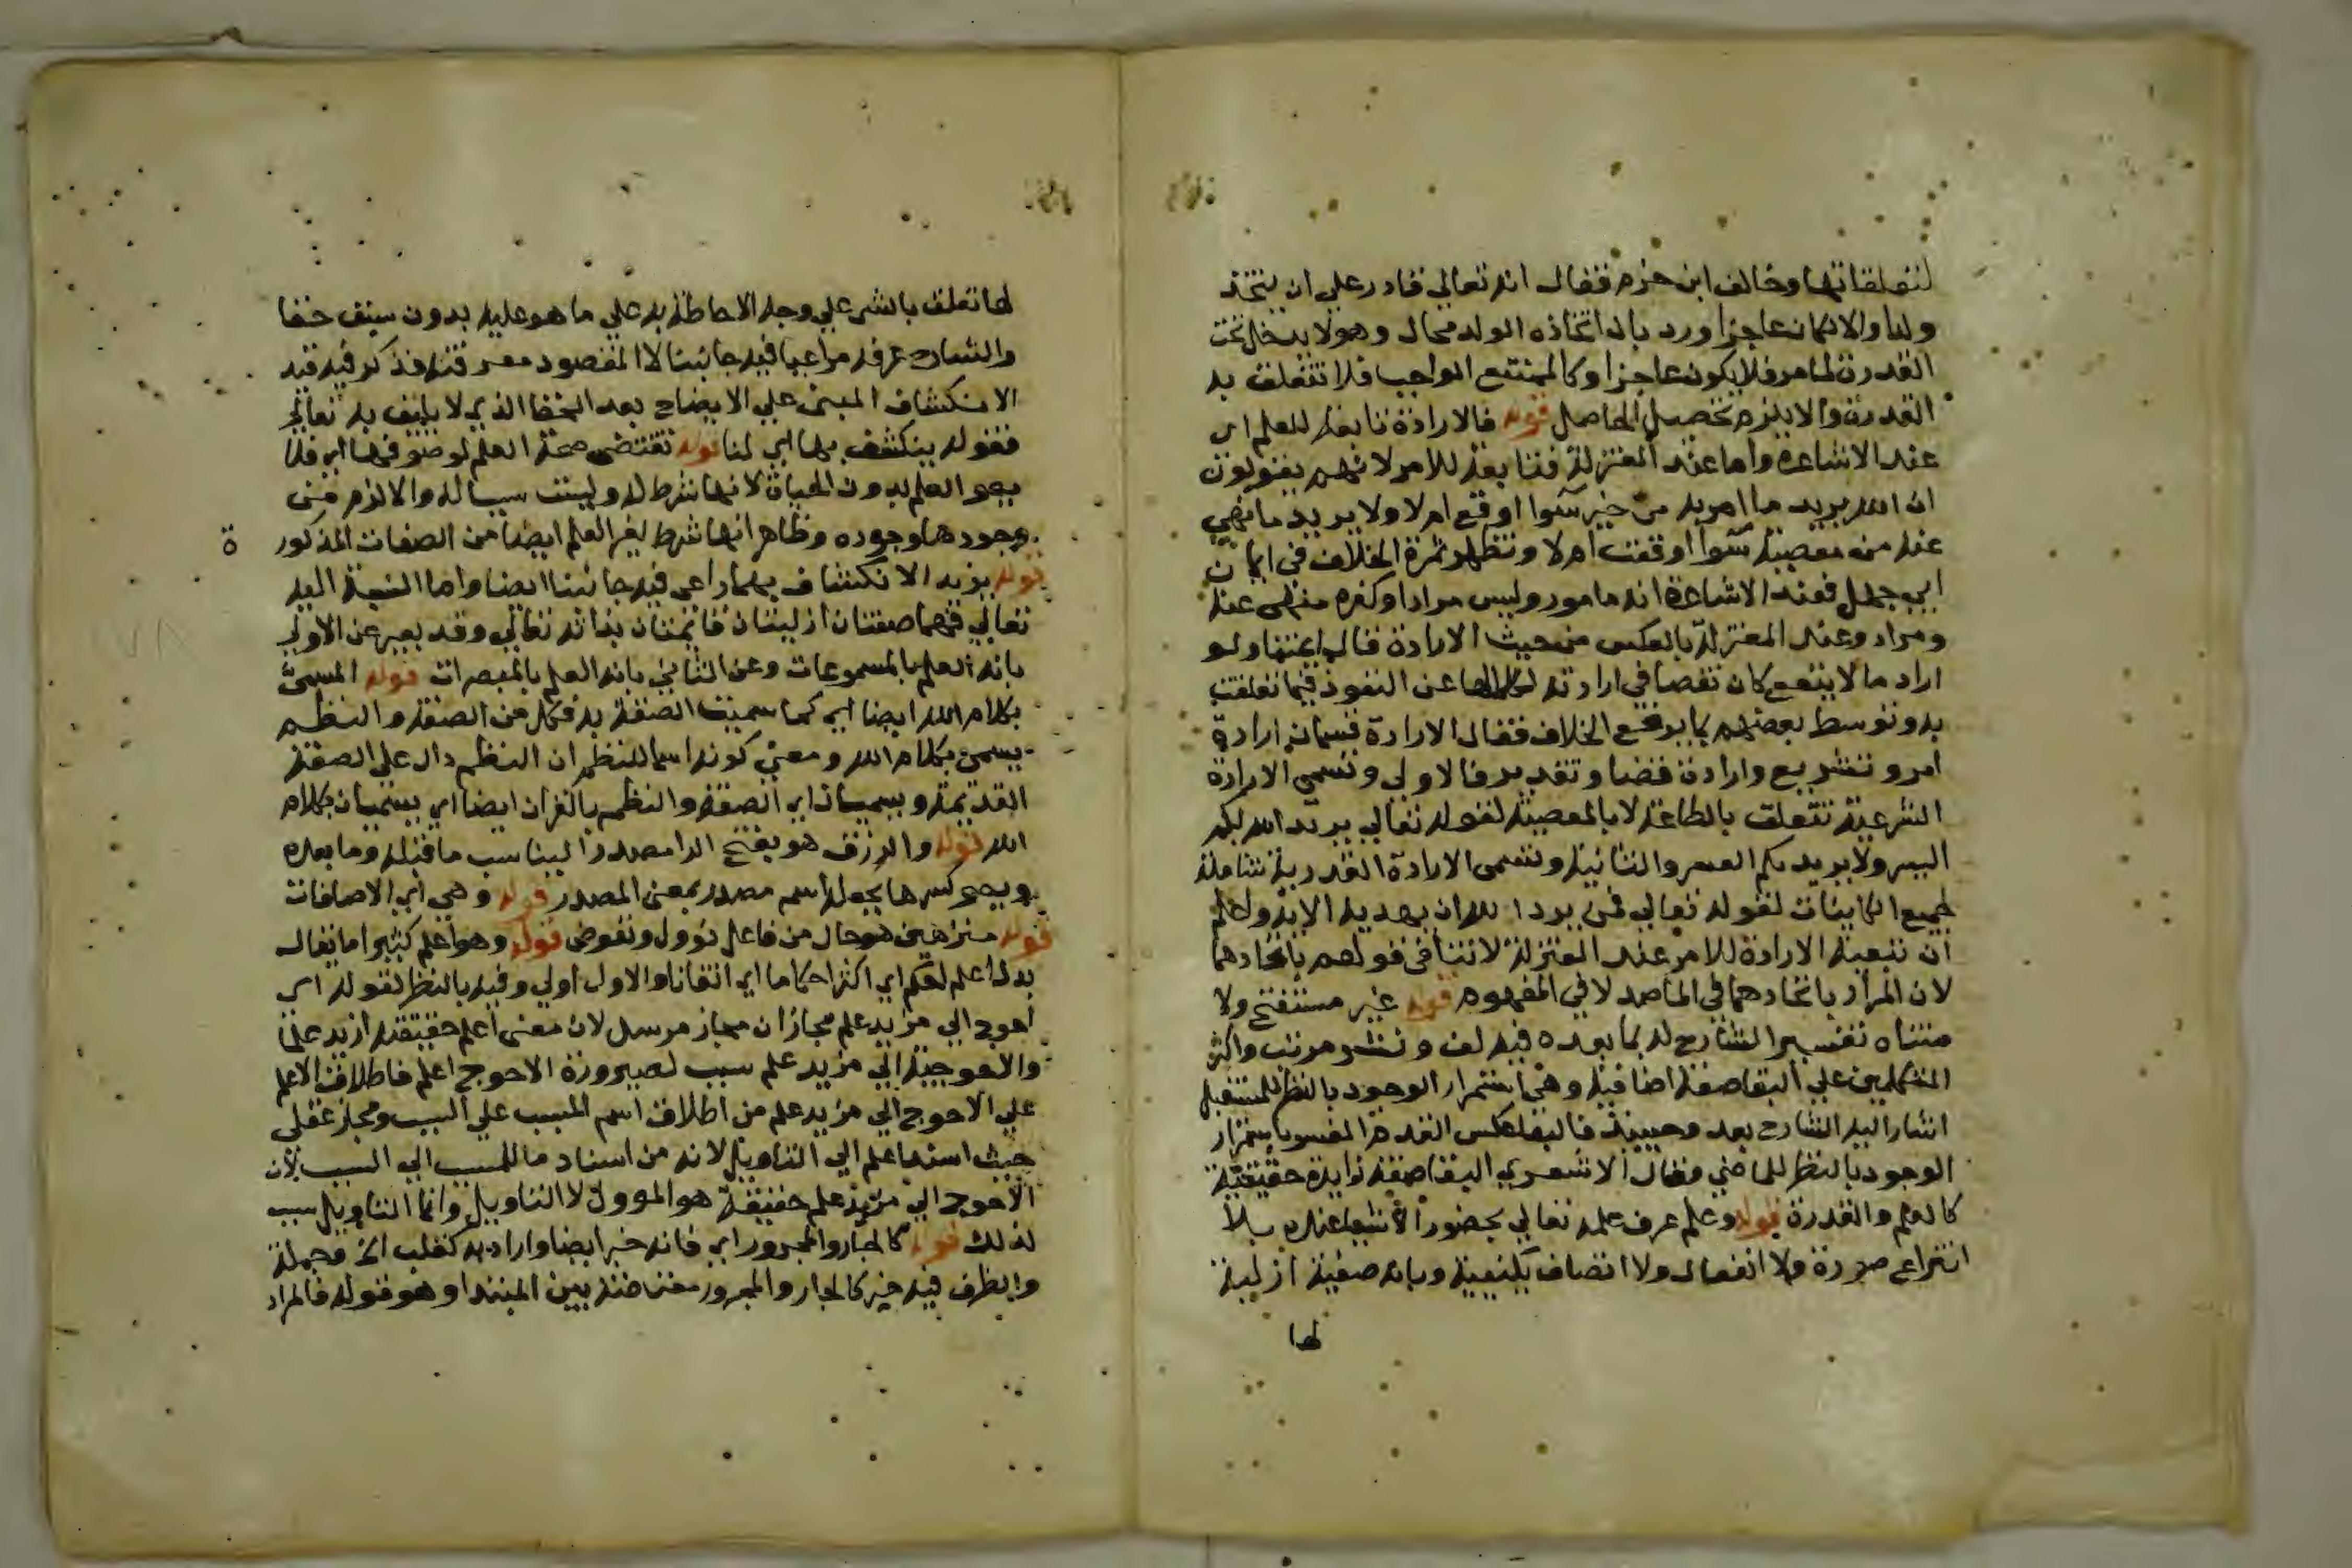 لتعلقاتها وخالف ابن حزم فقال انه تعالى قادر على ان يتخذ
ولدا والا لكان عاجزا ورد بان اتخاذه الولد محال وهو لا يدخل تحت
القدرة لما مر فلا يكون عاجزا وكالممتنع الواجب فلا تتعلق به
القدرة والا يلزم تحصيل الحاصل قوله فالارادة تابعة للعلم اي
عند الاشاعرة واما عند المعتزلة فتابعة للامر لانهم يقولون
ان الله يريد ما امر به من خير سوا اوقع ام لا ولا يريد ما نهي
عنه من معصية سوا اوقعت ام لا وتظهر ثمرة الخلاف في ايمان
ابي جهل فعند الاشاعرة انه مامور وليس مرادا وكفره منهي عنه
ومراد وعند المعتزلة بالعكس من حيث الارادة قال ايمتنا ولو
اراد ما لا يقع كان نقصا في ارادته عن النفوذ فيما تعلقت
به وتوسط بعضهم بما يرفع الخلاف فقال الارادة قسمان ارادة
امر وتشريع وارادة قضا وتقدير فالاولى وتسمى الارادة
الشرعية تتعلق بالطاعة لا بالمعصية لقوله تعالى يريد الله بكم
اليسر ولا يريد بكم العسر والثانية وتسمى الارادة القدرية شاملة
لجميع الكاينات لقوله تعالى فمن يرد الله ان يهديه الاية واعلم
ان تبعية الارادة للامر عند المعتزلة لا تنافي قولهم باتحادهما
لان المراد باتحادهما في الماصدق لا في المفهوم قوله غير مستفتح ولا
متناه تفسير الشارح له بما بعده فيه لف ونشر مرتب واكثر
المتكلمين على البقا صفة اضافية وهي استمرار الوجود بالنظر للمستقبل
اشار اليه الشارح بعد وحينيذ فالبقا عكس القدم المفسر باستمرار
الوجود بالنظر للماضي وقال الاشعري البقا صفة زايدة حقيقية
كالعلم والقدرة قوله وعلم عرف علمه تعالى بحضور الاشيا عنده بلا
انتزاع صورة ولا انفعال ولا اتصاف بكيفية وبانه صفة ازلية
لها
لها تعلق بالشي على وجه الاحاطة به على ما هو عليه بدون سبق خفا
والشارح عرفه مراعيا فيه جانبنا لا المقصود معرفته فذكر فيه قيد
الانكشاف المبنى على الايضاح بعد الخفا الذي لا يليق به تعالى
فقوله ينكشف بها اي لنا قوله تقتضي صحة العلم لموصوفها اي فلا
يصح العلم بدون الحياة لانها شرط له وليست سببا له والا لزم من
وجودها وجوده وظاهر انها شرط لغير العلم ايضا من الصفات المذكورة
قوله يزيد الانكشاف بهما راعى فيه جانبنا ايضا واما بالنسبة اليه
تعالى فهما صفتان ازليتان قائمتان بذاته تعالى وقد يعبر عن الاولى
بانه العلم بالمسموعات وعن الثاني بانه العلم بالمبصرات قوله المسمى
بكلام الله ايضا اي كما سميت الصفة به فكل من الصفة والنظم
يسمى بكلام الله ومعنى كونه اسما للنظم ان النظم دال على الصفة
القديمة ويسميان اي الصفة والنظم بالقران ايضا اي يسميان بكلام
الله قوله والرزق هو بفتح الرا مصدرا ليناسب ما قبله وما بعده
ويصح كسرها بجعله اسم مصدر بمعنى المصدر قوله وهي اي الاضافات
قوله منزهين هو حال من فاعل نؤول ونفوض قوله وهو اعلم كثيرا ما يقال
بدل اعلم احكم اي اكثر احكاما اي اتقانا والاول اولى وفيه بالنظر لقوله اي
احوج الى مزيد علم مجازان مجاز مرسل لان معنى اعلم حقيقة ازيد علما
والاحوجية الى مزيد علم سبب لصيرورة الاحوج اعلم فاطلاق الاعلم
على الاحوج الى مزيد علم من اطلاق اسم المسبب على السبب ومجاز عقلي
حيث اسند اعلم الى التاويل لانه من اسناد ما للمسبب الى السبب لان
الاحوج الى مزيد علم حقيقة هو الموول لا التاويل وانما التاويل سبب
لذلك قوله كالجار والمجرور اي فانه خبر ايضا واراد به كقلب الخ فجملة
والظرف فيه خبر كالجار والمجرور معترضة بين المبتدا وهو قوله فالمراد